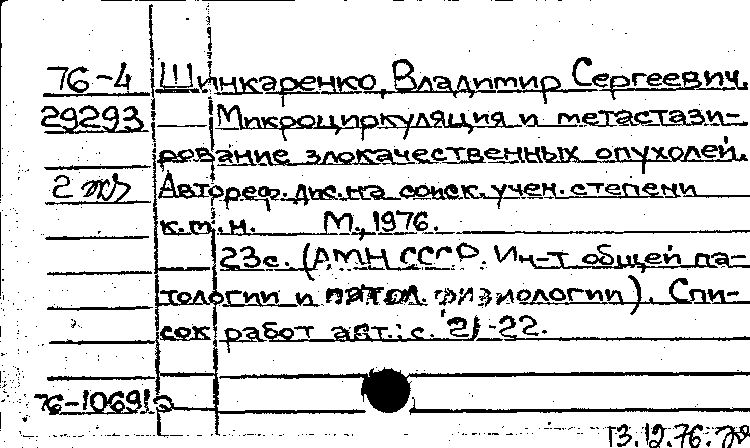 76-4 Шинкаренко, Владимир Сергеевич.
29293 Микроциркуляция и метастази-
рование злокачественных опухолей.
2 Автореф. дис. на соиск. учен. степени
к.м.н. М., 1976.
23с. (АМН СССР. Ин-т общей па-
тологии и патол. физиологии). Спи-
сок работ авт.: с. 21-22.
76-10691
13.12.76.